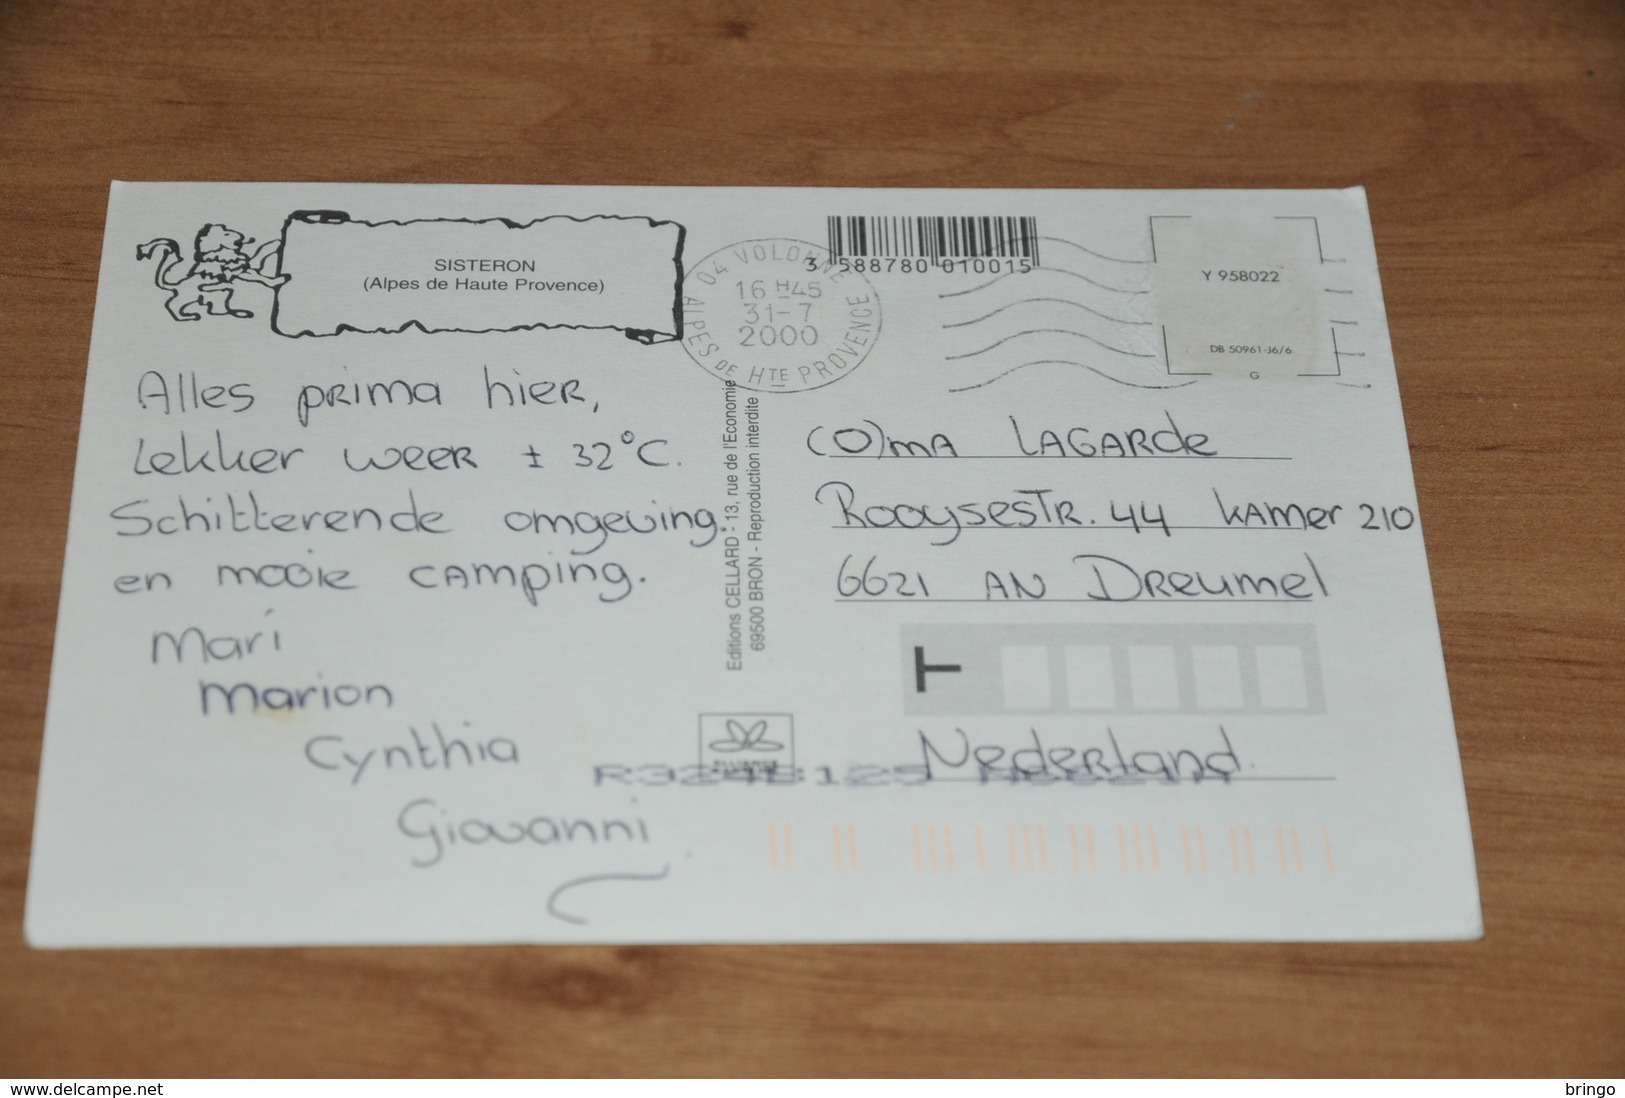 SISTERON
(Alpes de Haute Provence)
3 588780 010015
04 VOLONNE
16 H45
31-7
2000
ALPES DE HTE PROVENCE
Y 958022
DB 50961-J6/6
G
Alles prima hier,
Lekker weer ± 32°C.
Schitterende omgeving.
en mooie camping.
Mari
Marion
Cynthia
Giovanni
Editions CELLARD - 13, rue de l'Economie
69500 BRON - Reproduction interdite
(O)ma LAGARde
Rooysestr. 44 kamer 210
6621 AN Dreumel
T
Nederland.
delcampe.net
bringo